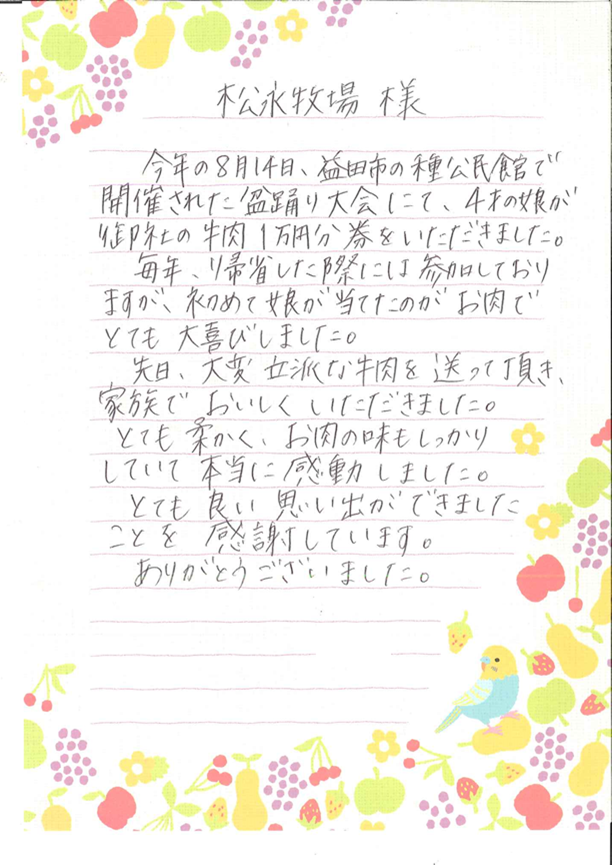 松永牧場 様
今年の8月14日、益田市の種公民館で
開催された盆踊り大会にて、4才の娘が
御社の牛肉1万円分券をいただきました。
毎年、帰省した際には参加しており
ますが、初めて娘が当てたのがお肉で
とても大喜びしました。
先日、大変立派な牛肉を送って頂き、
家族でおいしくいただきました。
とても柔かく、お肉の味もしっかり
していて本当に感動しました。
とても良い思い出ができました
ことを感謝しています。
ありがとうございました。